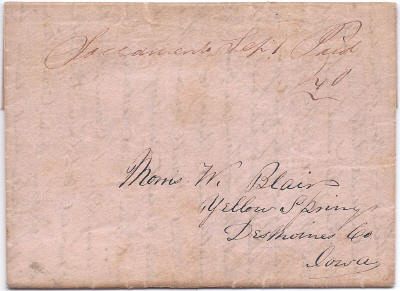 Sacramento Sept 1 Paid
40
Morris W. Blair
Yellow Springs
Desmoines Co
Iowa